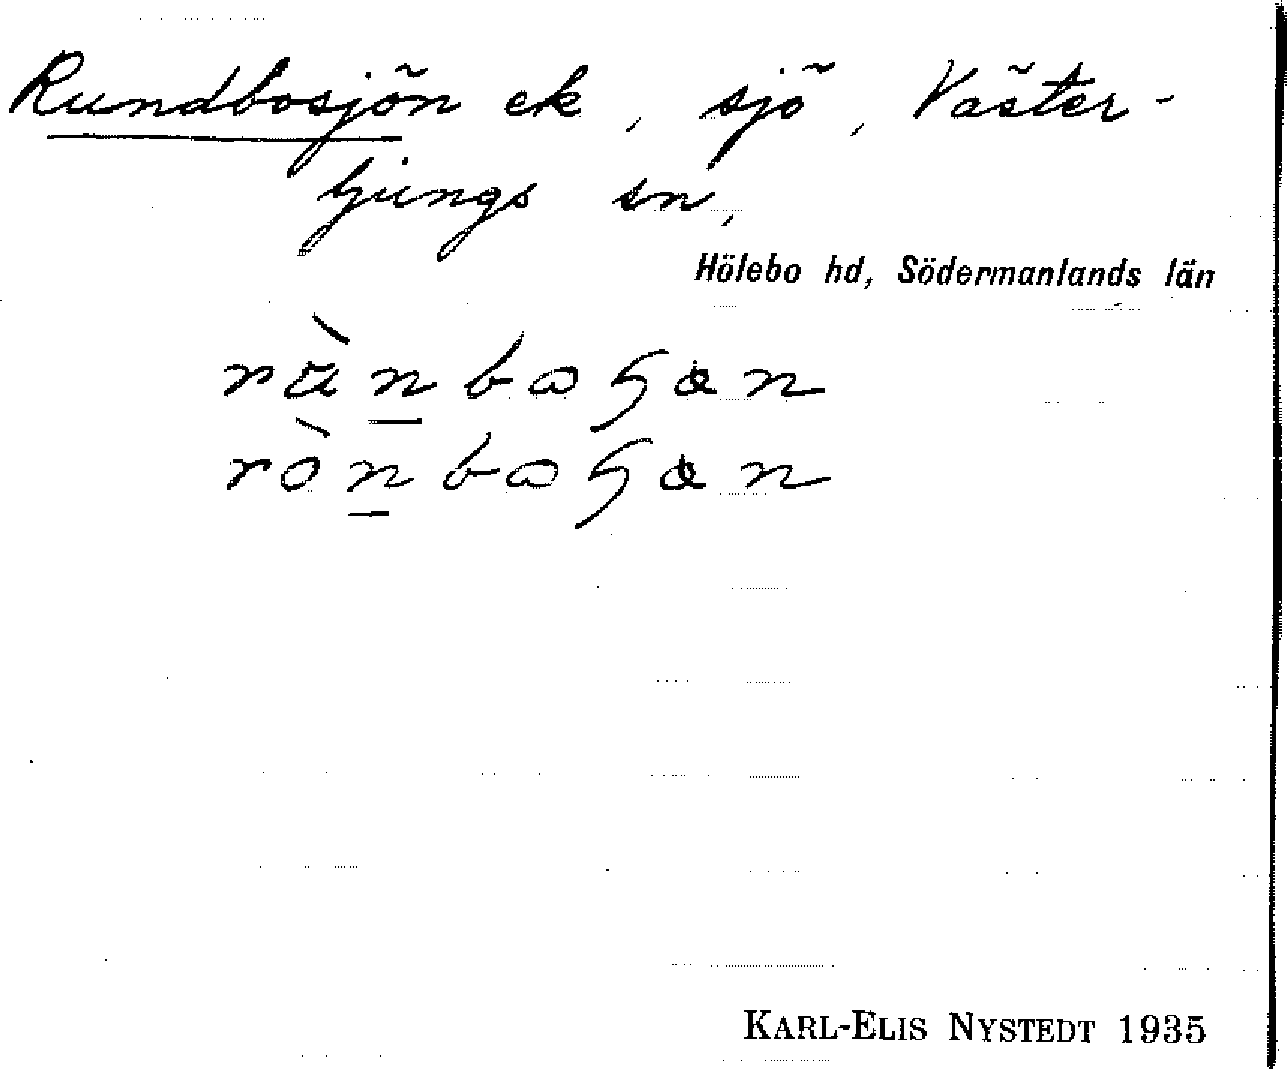 Rundbosjön ek, sjö, Väster-
ljungs sn,
Hölebo hd, Södermanlands län
KARL-ELIS NYSTEDT 1935